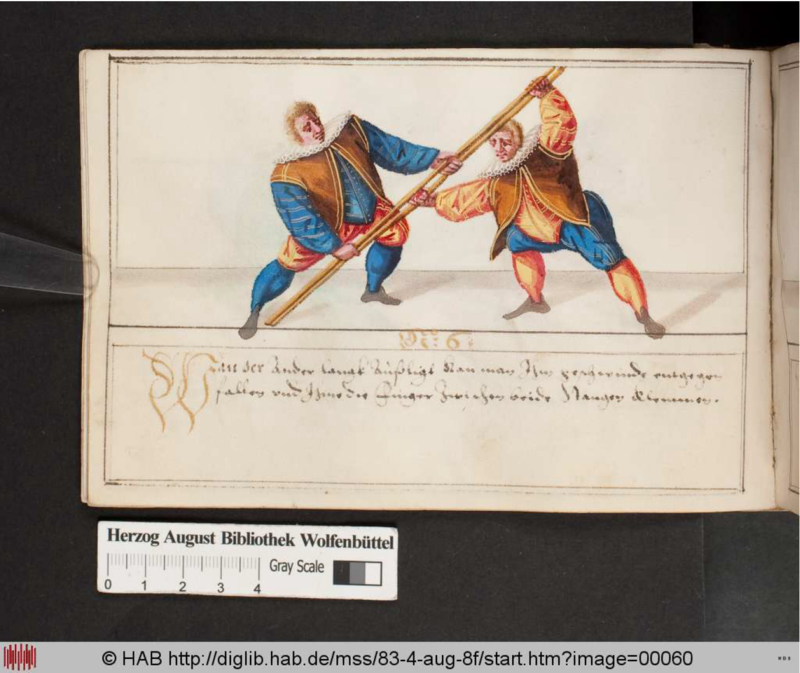 No: 6.
Wan der Ander langk Außligt Kan man Ihm entgegen
fallen und Ihme die Finger Zwischen beide Stangen Klemmen.
Herzog August Bibliothek Wolfenbüttel
Gray Scale
0 1 2 3 4
© HAB http://diglib.hab.de/mss/83-4-aug-8f/start.htm?image=00060